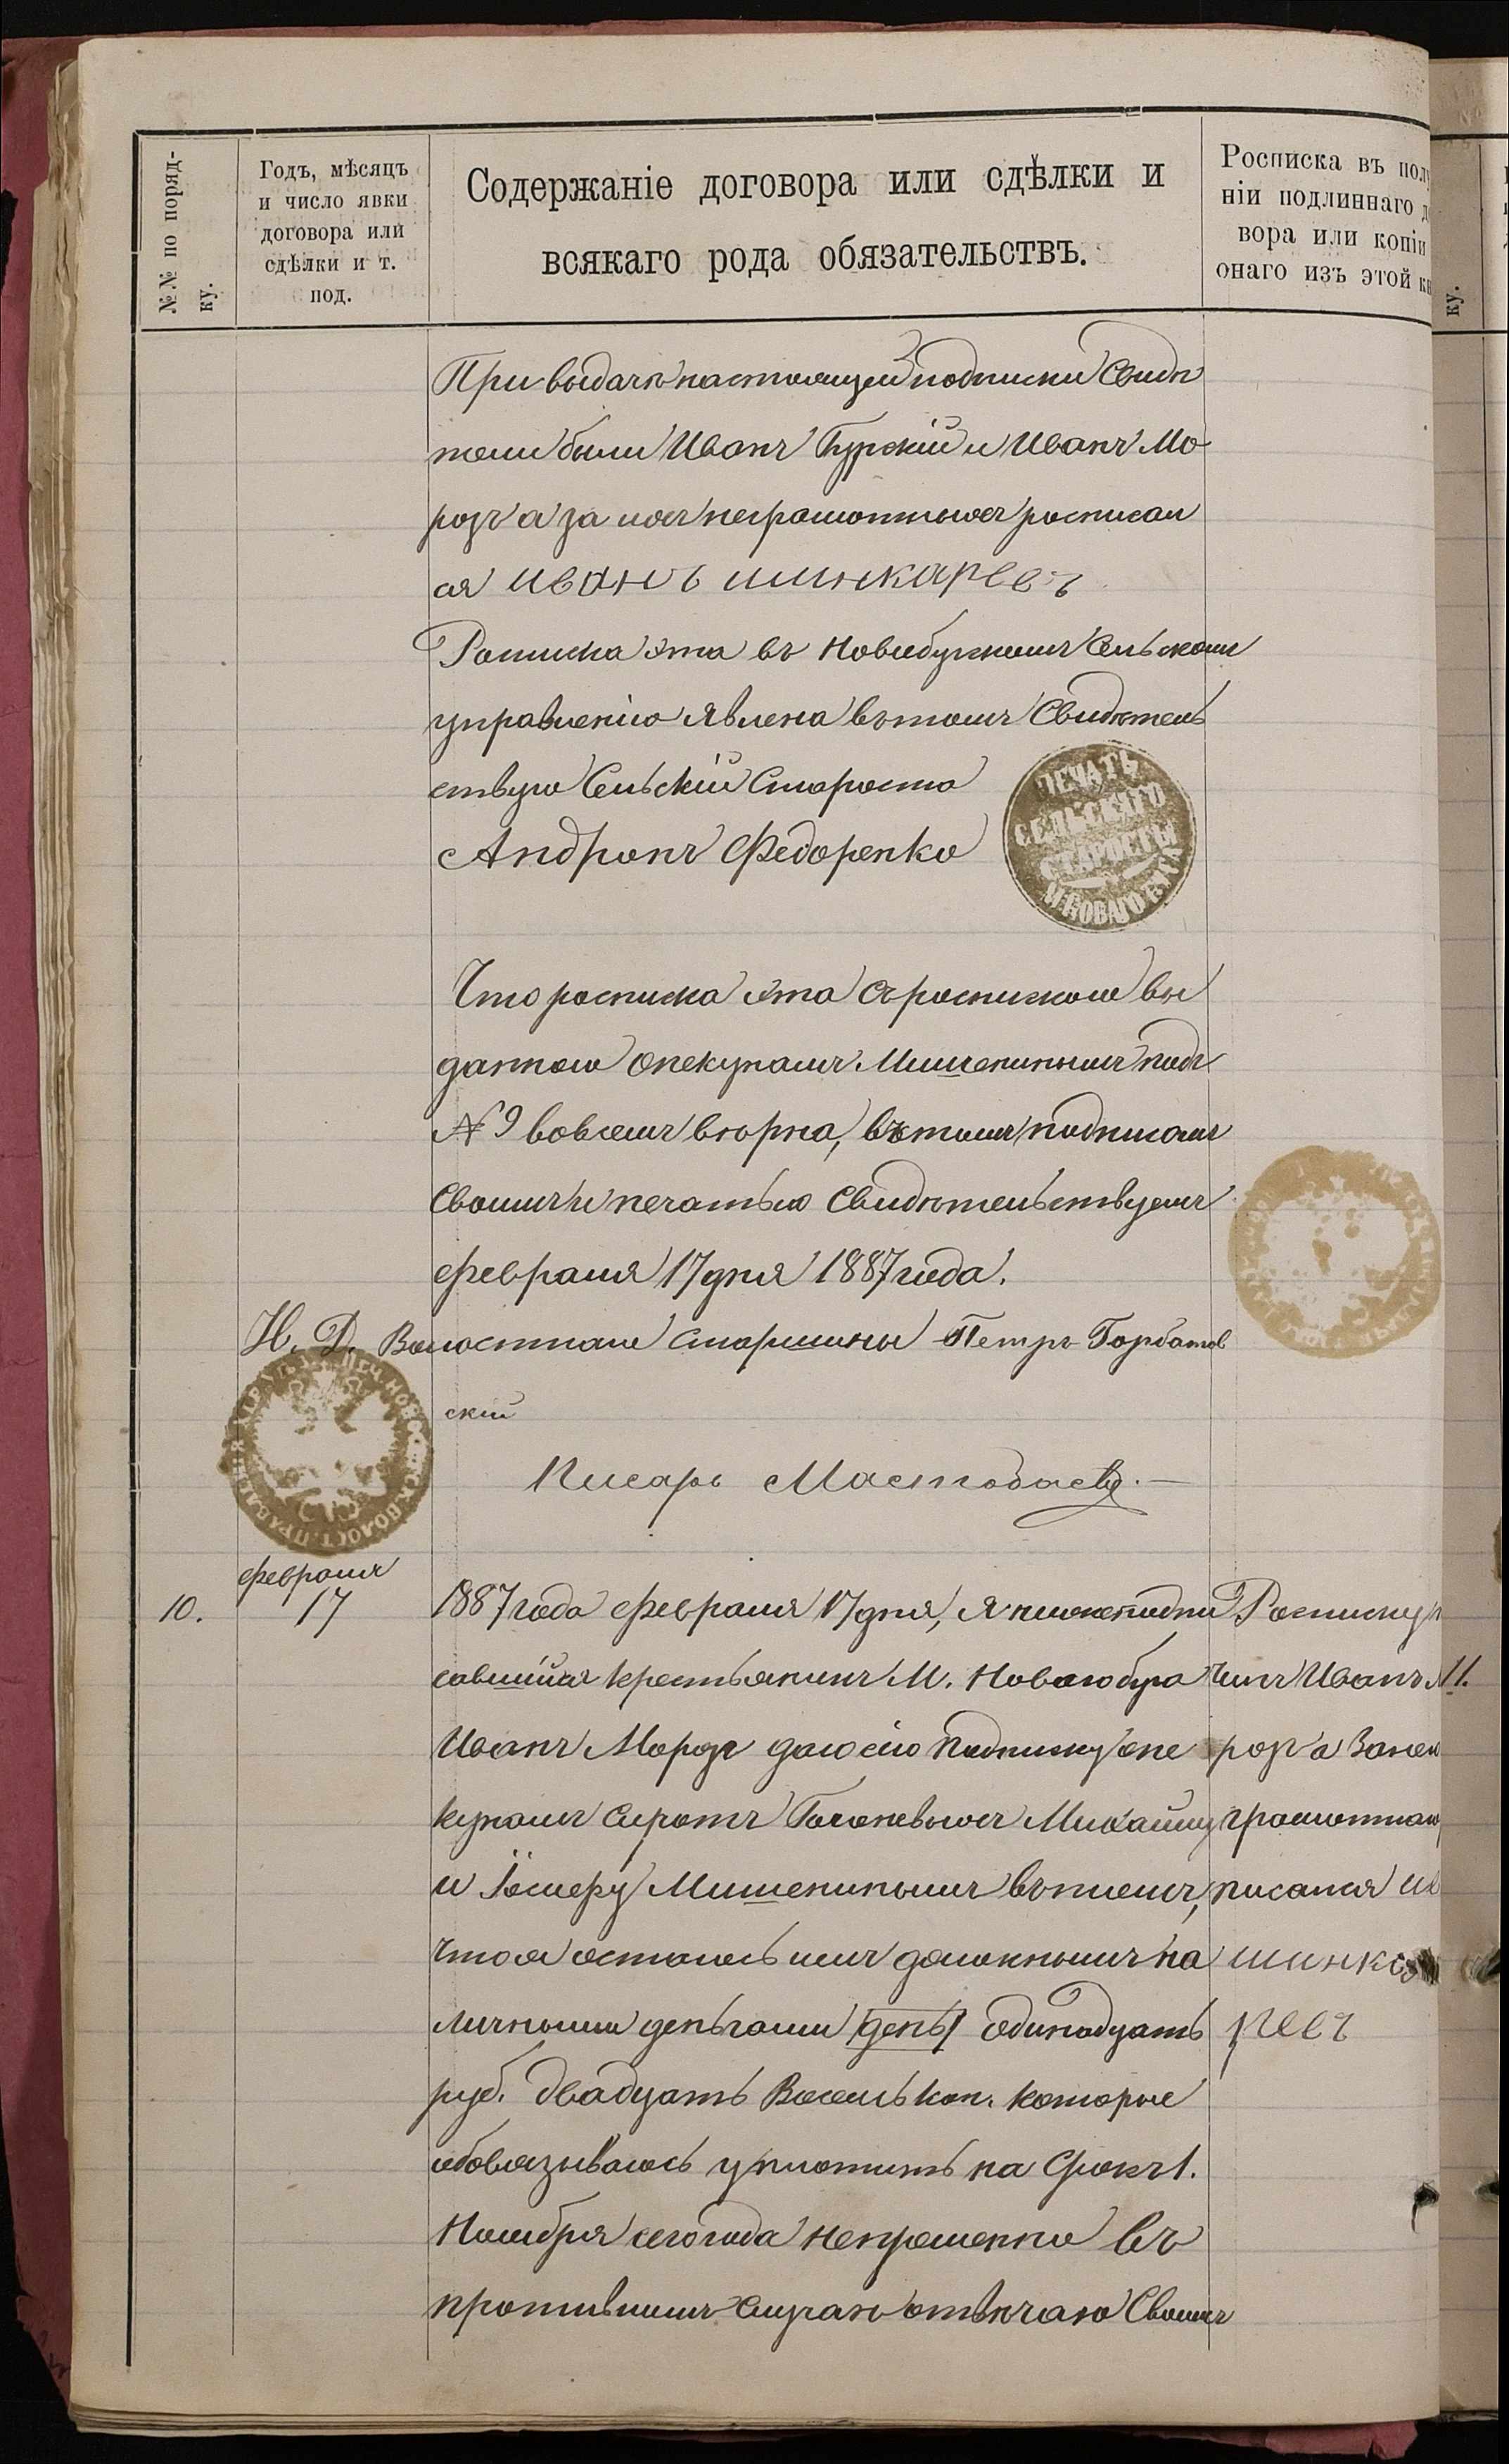 №№ по поряд-
ку.
Годъ, мѣсяцъ
и число явки
договора или
сдѣлки и т.
под.
Содержаніе договора или сдѣлки и
всякаго рода обязательствъ.
Росписка въ пол
ніи подлиннаго д
вора или копіи
онаго изъ этой кн
ку.
При выдачѣ настоящей подписки Свидѣ
тели были Иванъ Гурскій и Иванъ Мо-
розъ а за ихъ неграмотныхъ росписал
ся иванъ шинкаревъ
Росписка эта въ Новобугскомъ Сельскомъ
управленію явлена въ томъ Свидѣтель
ствую Сельскій Староста
Андронъ Федоренко
ПЕЧАТЬ
СЕЛЬСКАГО
СТАРОСТЫ
М. НОВАГО БУГА
Что росписка эта съ роспискою вы
данною опекунамъ Мишенинымъ подъ
№ 9 вовсемъ вѣрна, въ томъ подписомъ
Своимъ и печатью Свидѣтельствуемъ
февраля 17 дня 1887 года.
И. Д. Волостнаго старшины Петръ Горбатов
скій
Писарь
10.
февраля
17
1887 года февраля 17 дня, Я нижеподпи
савшійся крестьянинъ М. Новаго буга
Иванъ Морозъ даю сію подписку опе
кунамъ сиротъ Михайлу
и Мишенинымъ въ томъ,
что я остался имъ должнымъ на
личными деньгами /день/ одинадцать
руб. двадцать Восемь коп. которые
обовязываюсь уплотить на Срокъ 1.
Ноября сего года непременно въ
противномъ случаѣ отвѣчаю Своимъ
Росписку п
чилъ Иванъ М
розъ а За не
грамотнаго
писался ив
шинка
ревъ
11.